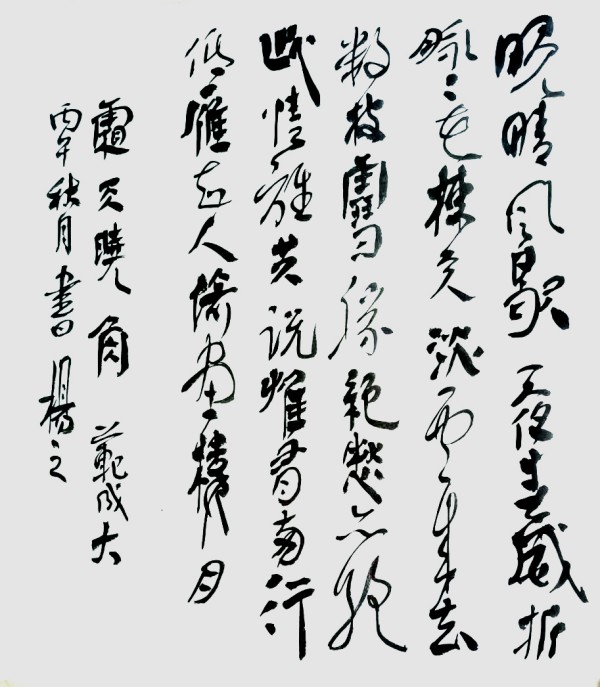 晚晴風歇一夜春威折
脉々花疎天淡雲來去
數枝雪勝絕愁亦絕
此情誰共說惟有兩行
低雁知人倚畫樓月
霜天曉角 範成大
丙午秋月書楊